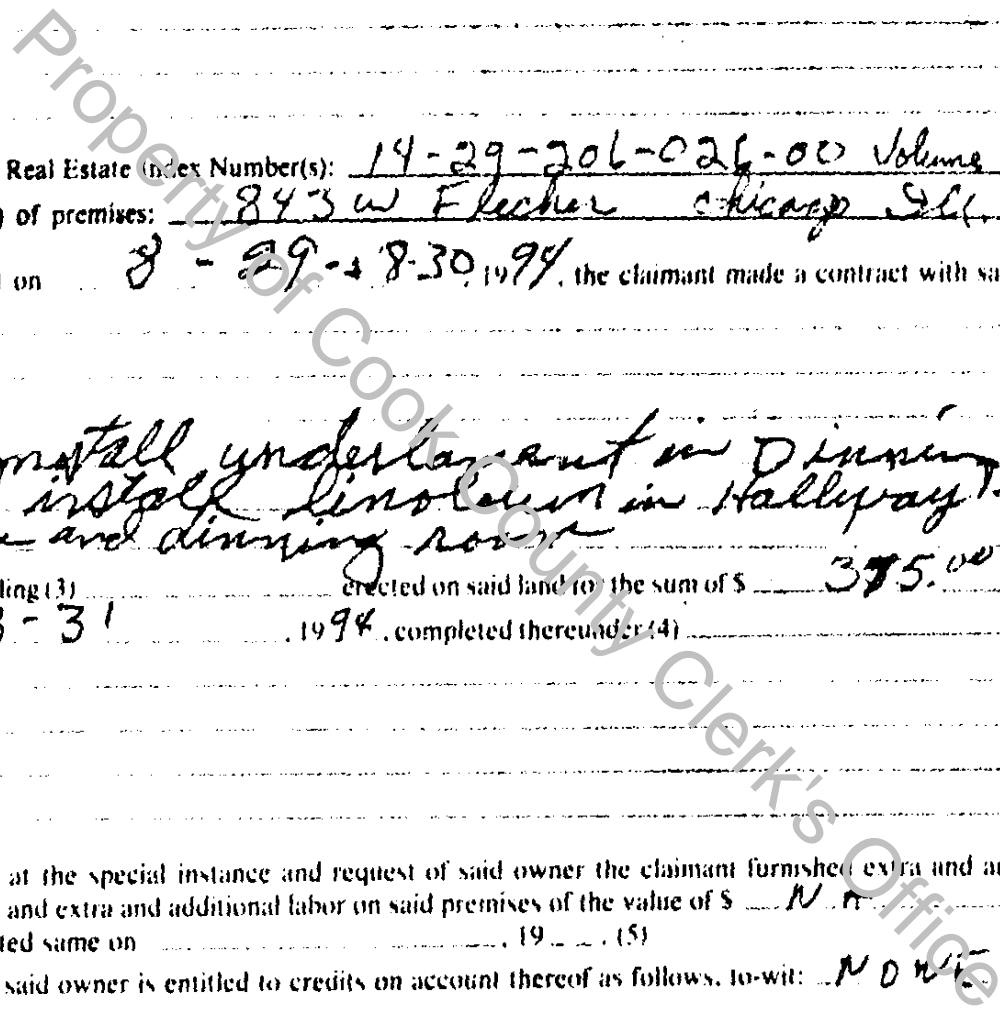 Real Estate Index Number(s): 14-29-206-026-00 Volume
) of premises: 843 W Flecher Chicago Ill.
on 8-29-&8-30, 1994, the claimant made a contract with sa
install underlament in Dinning
install linoleum in Hallway
and dinning room
ling (3) erected on said land for the sum of $ 375.00
- 31, 1994, completed thereunder (4)
at the special instance and request of said owner the claimant furnished extra and a
and extra and additional labor on said premises of the value of $ N A
ted same on , 19 . (5)
said owner is entitled to credits on account thereof as follows, to-wit: NONE
Property of Cook County Clerk's Office